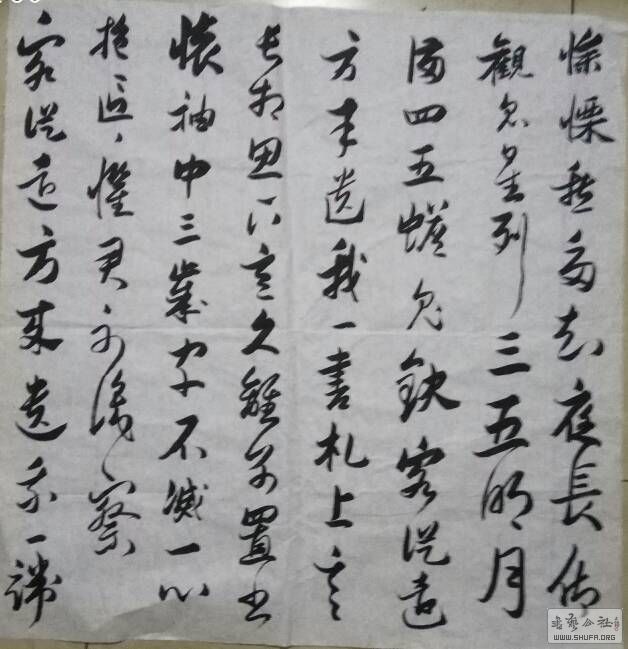 惨慄愁多知夜長仰
觀众星列三五明月
滿四五蟾兔缺客從遠
方来遺我一書札上言
長相思下言久離别置书
懷袖中三歲字不滅一心
抱區、懼君不識察
客從遠方来遺我一端
書藝公社
WWW.SHUFA.ORG